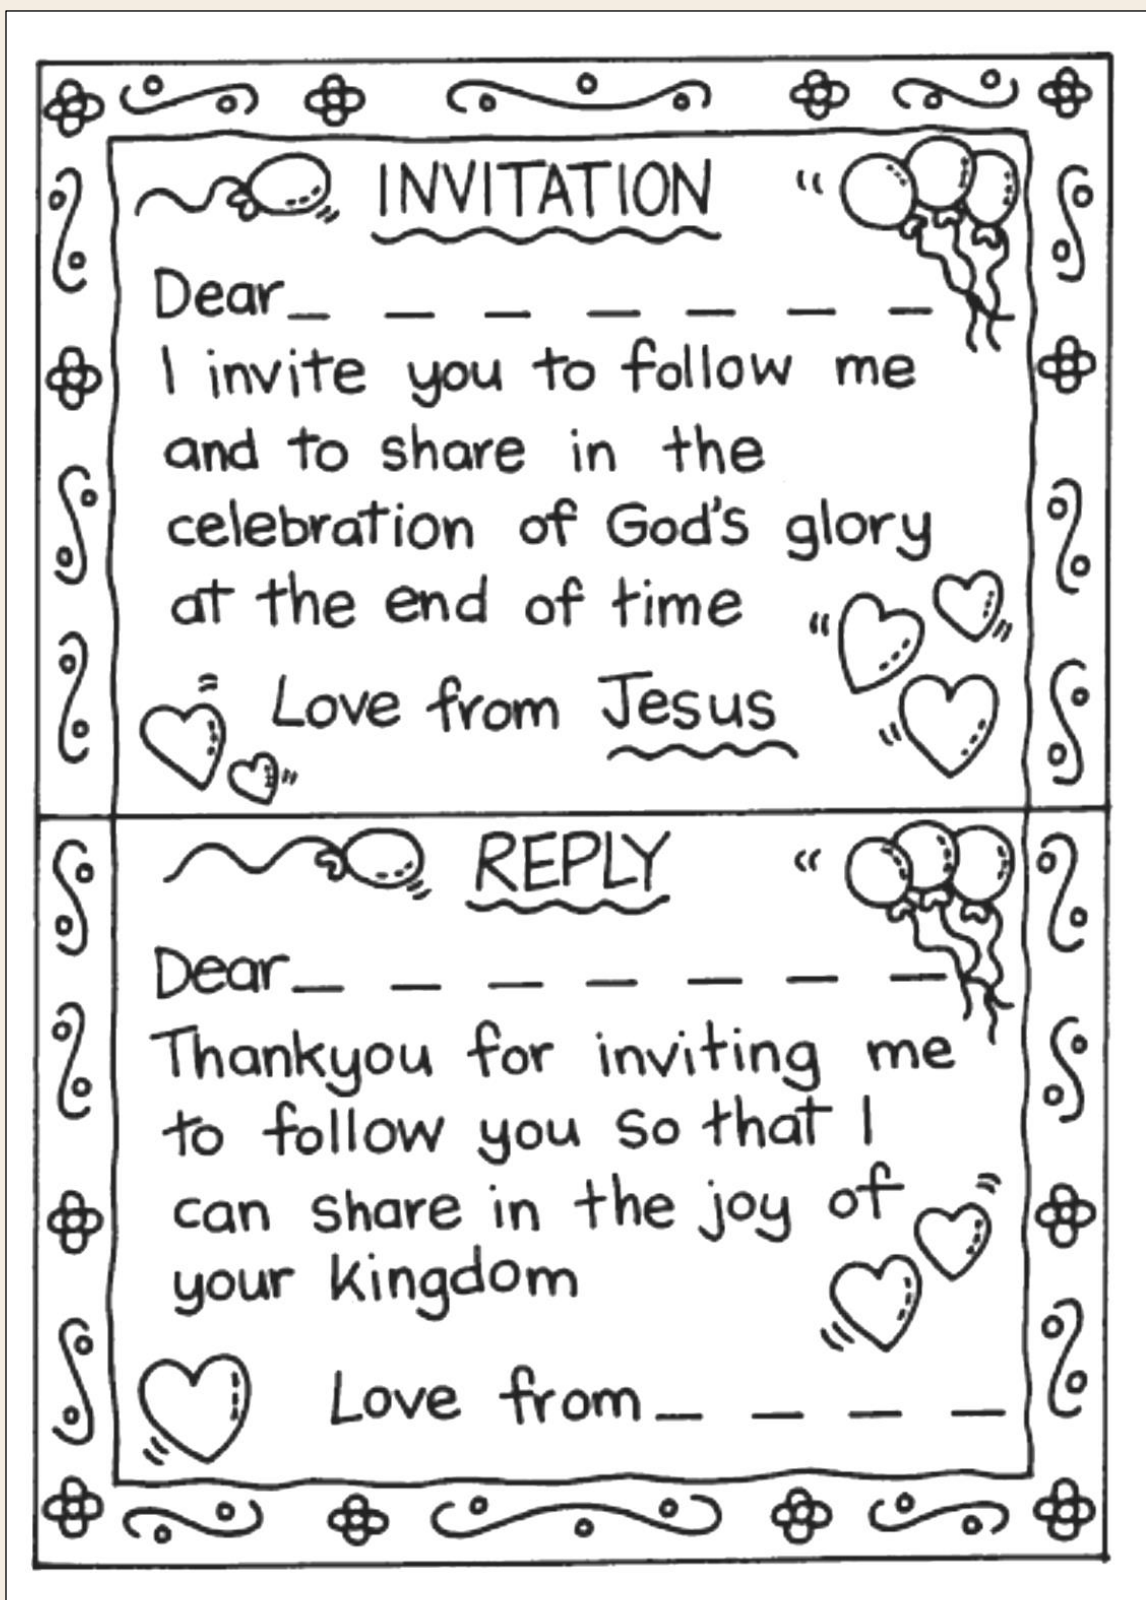 INVITATION
Dear_ _ _ _ _ _ _
I invite you to follow me
and to share in the
celebration of God's glory
at the end of time
Love from Jesus
REPLY
Dear_ _ _ _ _ _ _
Thankyou for inviting me
to follow you so that I
can share in the joy of
your kingdom
Love from_ _ _ _